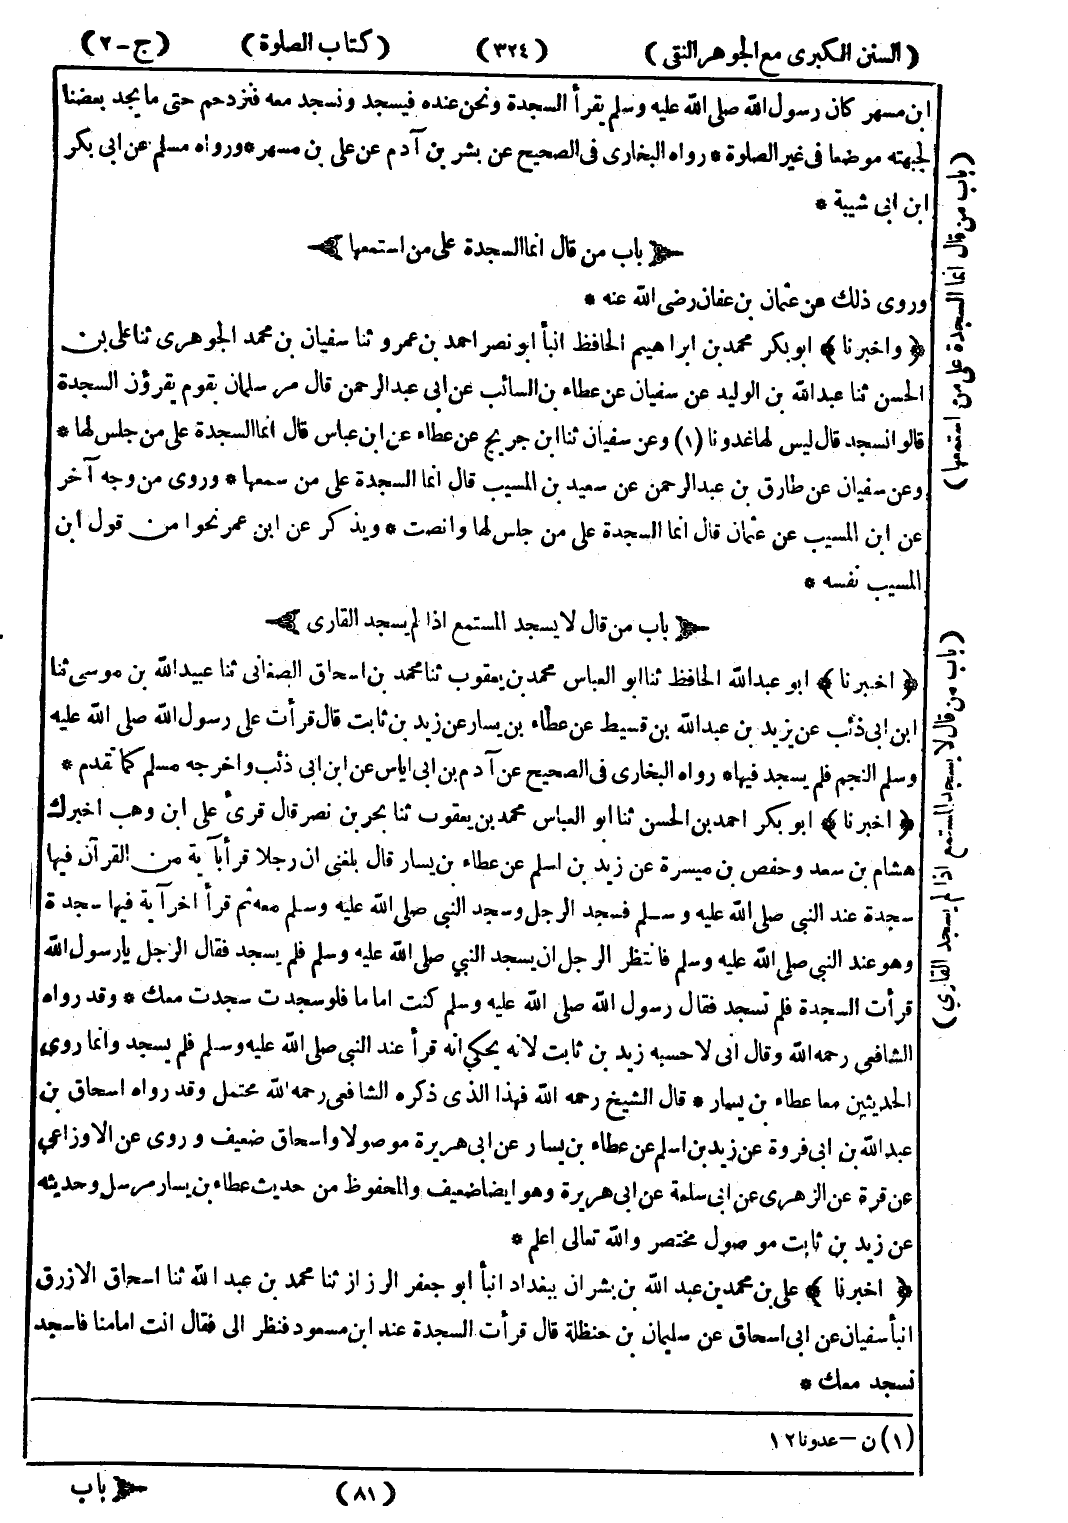 (السنن الكبرى مع الجوهر النقى) (٣٢٤) (كتاب الصلوة) (ج-٢)
ابن مسهر كان رسول الله صلى الله عليه وسلم يقرأ السجدة ونحن عنده فيسجد ونسجد معه فنزدحم حتى ما يجد بعضنا
لجبهته موضعا فى غير الصلوة * رواه البخارى فى الصحيح عن بشر بن آدم عن على بن مسهر * ورواه مسلم عن ابى بكر
ابن ابى شيبة *
باب من قال انما السجدة على من استمعها
وروى ذلك عن عثمان بن عفان رضى الله عنه *
﴿ واخبرنا ﴾ ابو بكر محمد بن ابراهيم الحافظ انبأ ابو نصر احمد بن عمرو ثنا سفيان بن محمد الجوهرى ثنا على بن
الحسن ثنا عبد الله بن الوليد عن سفيان عن عطاء بن السائب عن ابى عبد الرحمن قال مر سلمان بقوم يقرؤن السجدة
قالوا نسجد قال ليس لها غدونا (١) وعن سفيان ثنا ابن جريج عن عطاء عن ابن عباس قال انما السجدة على من جلس لها *
وعن سفيان عن طارق بن عبد الرحمن عن سعيد بن المسيب قال انما السجدة على من سمعها * وروى من وجه آخر
عن ابن المسيب عن عثمان قال انما السجدة على من جلس لها وانصت * ويذكر عن ابن عمر نحوا من قول ابن
المسيب نفسه *
باب من قال لا يسجد المستمع اذا لم يسجد القارى
﴿ اخبرنا ﴾ ابو عبد الله الحافظ ثنا ابو العباس محمد بن يعقوب ثنا محمد بن اسحاق الصغانى ثنا عبيد الله بن موسى ثنا
ابن ابى ذئب عن يزيد بن عبد الله بن قسيط عن عطاء بن يسار عن زيد بن ثابت قال قرأت على رسول الله صلى الله عليه
وسلم النجم فلم يسجد فيها * رواه البخارى فى الصحيح عن آدم بن ابى اياس عن ابن ابى ذئب واخرجه مسلم كما تقدم *
﴿ اخبرنا ﴾ ابو بكر احمد بن الحسن ثنا ابو العباس محمد بن يعقوب ثنا بحر بن نصر قال قرئ على ابن وهب اخبرك
هشام بن سعد وحفص بن ميسرة عن زيد بن اسلم عن عطاء بن يسار قال بلغنى ان رجلا قرأ بآية من القرآن فيها
سجدة عند النبى صلى الله عليه وسلم فسجد الرجل وسجد النبى صلى الله عليه وسلم معه ثم قرأ اخر آية فيها سجدة
وهو عند النبى صلى الله عليه وسلم فانتظر الرجل ان يسجد النبي صلى الله عليه وسلم فلم يسجد فقال الرجل يا رسول الله
قرأت السجدة فلم تسجد فقال رسول الله صلى الله عليه وسلم كنت اماما فلو سجدت سجدت معك * وقد رواه
الشافعى رحمه الله وقال انى لاحسبه زيد بن ثابت لانه يحكي انه قرأ عند النبى صلى الله عليه وسلم فلم يسجد وانما روى
الحديثين معا عطاء بن يسار * قال الشيخ رحمه الله فهذا الذى ذكره الشافعى رحمه الله محتمل وقد رواه اسحاق بن
عبد الله بن ابى فروة عن زيد بن اسلم عن عطاء بن يسار عن ابى هريرة موصولا واسحاق ضعيف وروى عن الاوزاعي
عن قرة عن الزهرى عن ابى سلمة عن ابى هريرة وهو ايضا ضعيف والمحفوظ من حديث عطاء بن يسار مرسل وحديثه
عن زيد بن ثابت موصول مختصر والله تعالى اعلم *
﴿ اخبرنا ﴾ على بن محمد بن عبد الله بن بشران ببغداد انبأ ابو جعفر الرزاز ثنا محمد بن عبد الله ثنا اسحاق الازرق
انبأ سفيان عن ابى اسحاق عن سليمان بن حنظلة قال قرأت السجدة عند ابن مسعود فنظر الى فقال انت امامنا فاسجد
نسجد معك *
(١) ن - عدونا ١٢
(٨١) باب
(باب من قال انما السجدة على من استمعها)
(باب من قال لا يسجد المستمع اذا لم يسجد القاري)